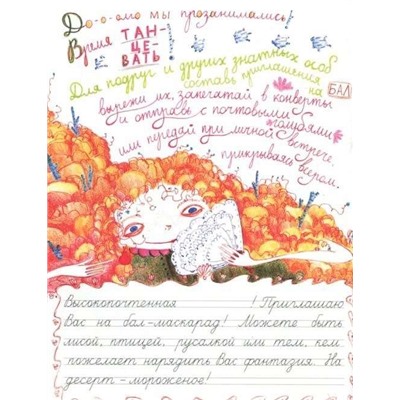 До-о-олго мы прозанимались!
Время ТАН-
ЦЕ-
ВАТЬ!
Для подруг и других знатных особ
составь приглашения
на БАЛ
вырежи их, запечатай в конверты
и отправь с почтовыми голубями
или передай при личной встрече,
прикрываясь веером.
Высокопочтенная ! Приглашаю
Вас на бал-маскарад! Можете быть
лисой, птицей, русалкой или тем, кем
пожелает нарядить Вас фантазия. На
десерт – мороженое!